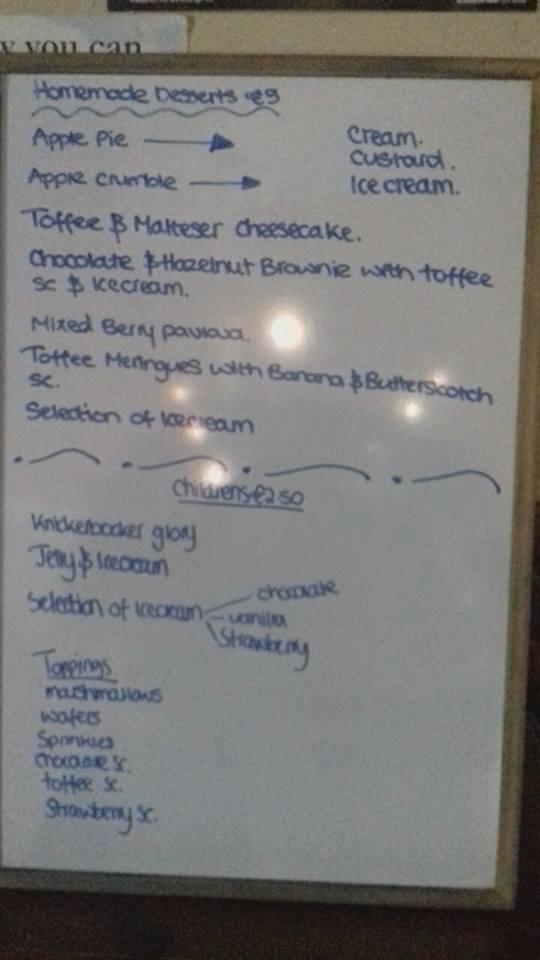 y you can
Homemade Desserts €3
Apple Pie
Cream.
Custard.
Apple Crumble
Ice cream.
Toffee & Malteser Cheesecake.
Chocolate & Hazelnut Brownie with toffee
sc & Icecream.
Mixed Berry pavlova.
Toffee Meringues with Banana & Butterscotch
sc.
Selection of Icecream
Childrens €2.50
Knickerbocker glory
Jelly & Icecream
Selection of Icecream
chocolate
vanilla
Strawberry
Toppings
marshmallows
wafers
Sprinkles
Chocolate sc.
toffee sc.
Strawberry sc.